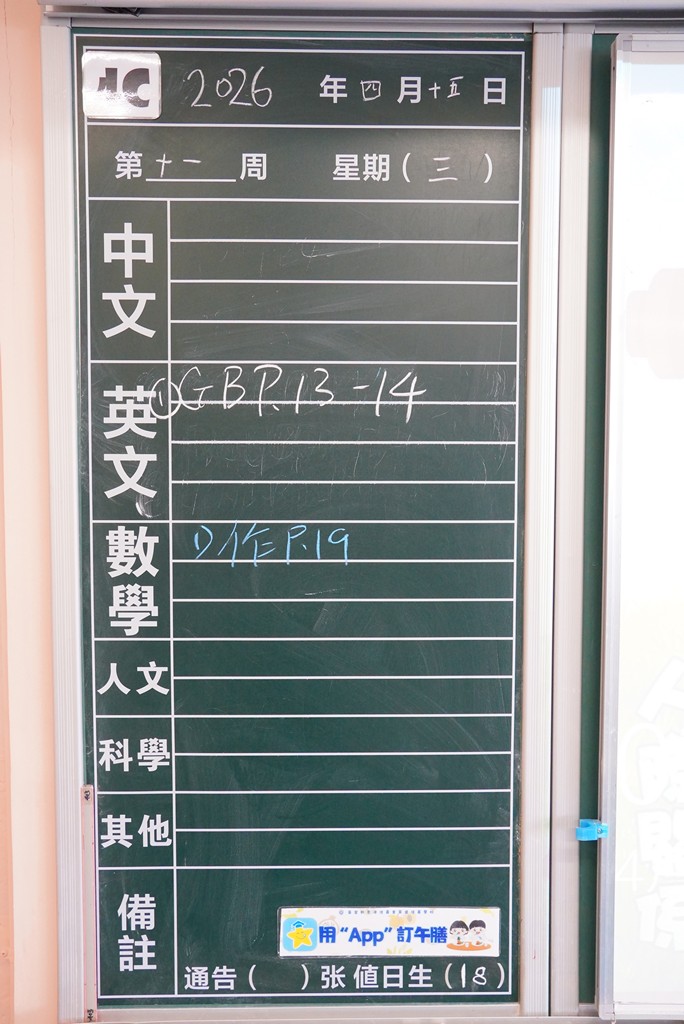 4C 2026 年 四 月 十五 日
第 十一 周 星期 ( 三 )
中文
英文 ① GB P.13-14
數學 1) 作 P.19
人文
科學
其他
備註
用 “App” 訂午膳
通告 ( ) 张 值日生 (18)